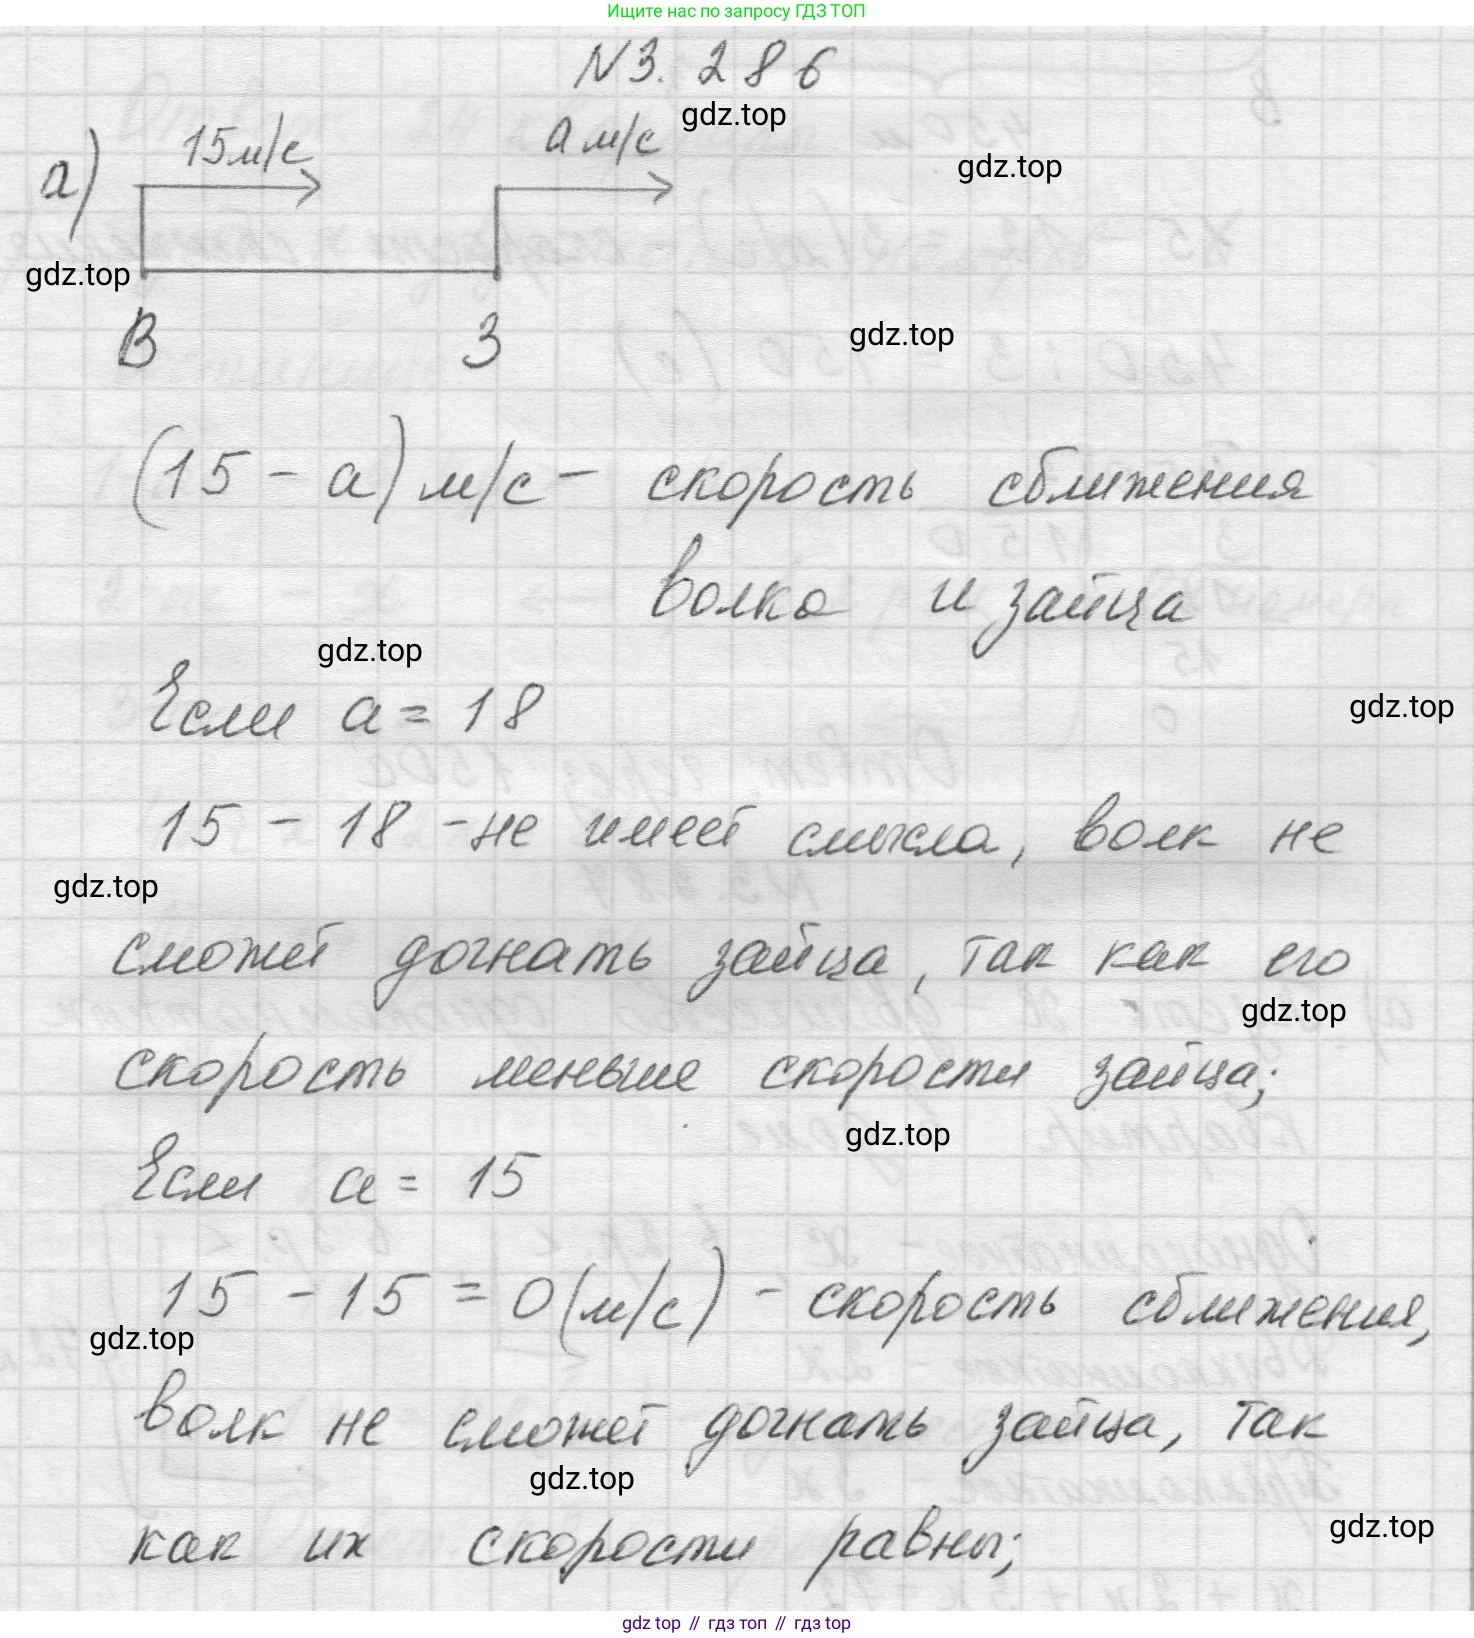 Ищите нас по запросу ГДЗ ТОП
N3.286
gdz.top
а) 15м/с а м/с
gdz.top
gdz.top
В З
gdz.top
(15 - а) м/с - скорость сближения
волка и зайца
gdz.top
Если а = 18
gdz.top
15 - 18 - не имеет смысла, волк не
gdz.top
сможет догнать зайца, так как его
gdz.top
скорость меньше скорости зайца;
gdz.top
Если а = 15
15 - 15 = 0 (м/с) - скорость сближения,
gdz.top
волк не сможет догнать зайца, так
gdz.top
gdz.top
как их скорости равны;
gdz top // гдз топ // гдз top